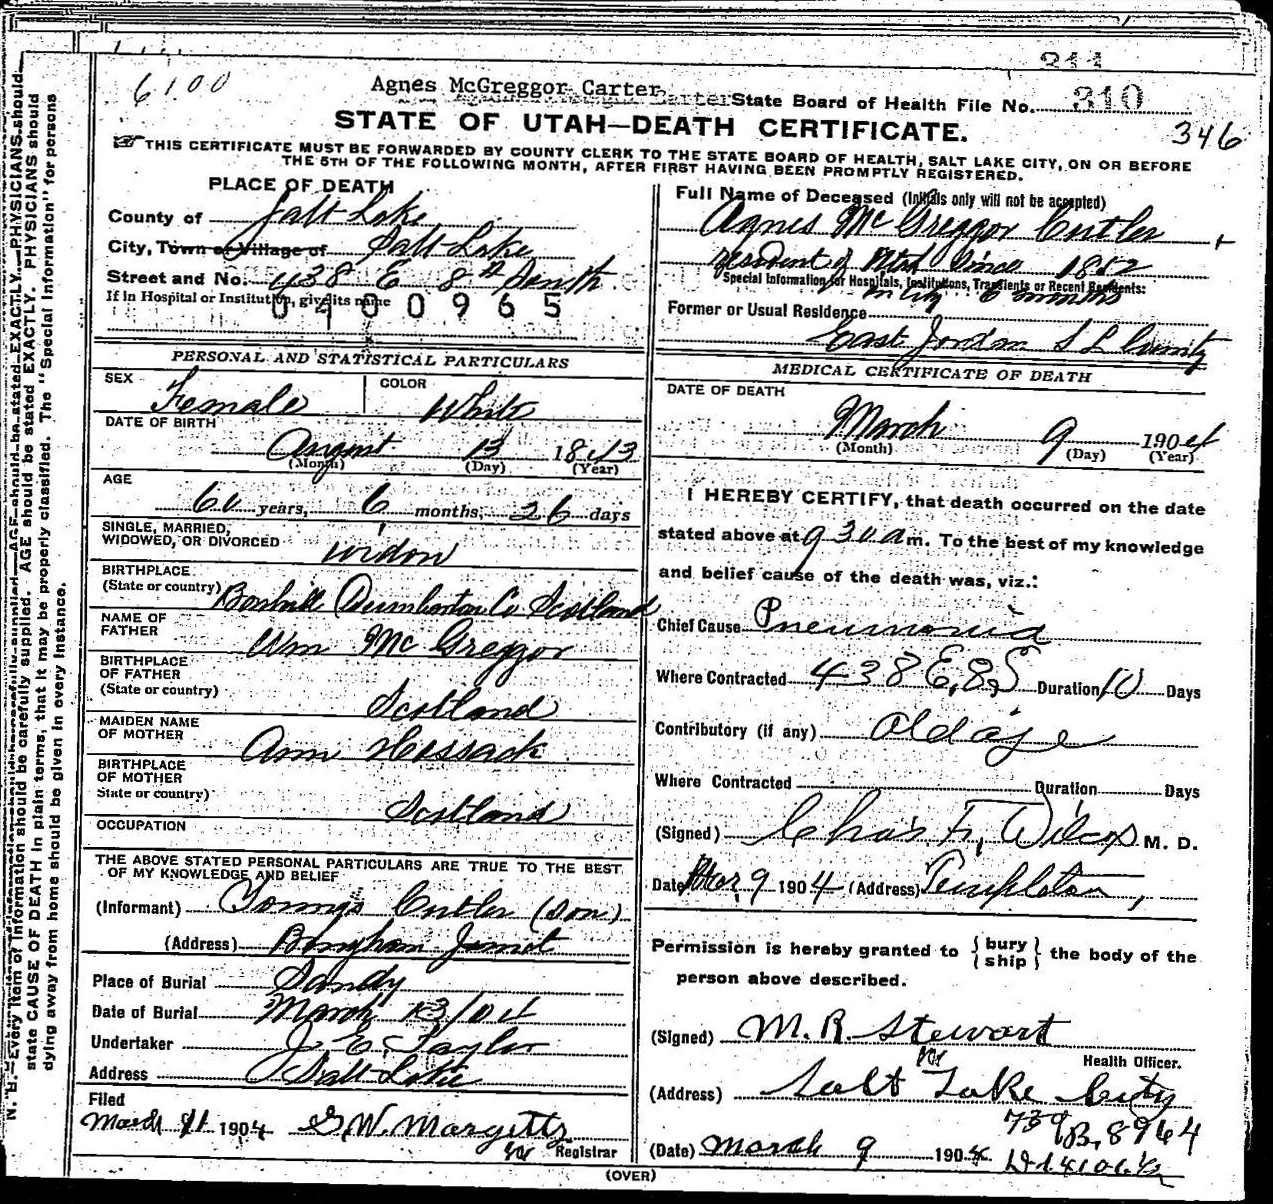 311
6100
Agnes McGreggor Carter
State Board of Health File No. 310
STATE OF UTAH—DEATH CERTIFICATE.
346
☞ THIS CERTIFICATE MUST BE FORWARDED BY COUNTY CLERK TO THE STATE BOARD OF HEALTH, SALT LAKE CITY, ON OR BEFORE
THE 5TH OF THE FOLLOWING MONTH, AFTER FIRST HAVING BEEN PROMPTLY REGISTERED.
PLACE OF DEATH
County of Salt Lake
City, Town or Village of Salt Lake
Street and No. 438 E 8th South
If in Hospital or Institution, give its name
0400965
PERSONAL AND STATISTICAL PARTICULARS
SEX Female COLOR White
DATE OF BIRTH
August 13 1843
(Month) (Day) (Year)
AGE
60 years, 6 months, 26 days
SINGLE, MARRIED,
WIDOWED, OR DIVORCED widow
BIRTHPLACE
(State or country) Bonhill Dumbarton Co Scotland
NAME OF
FATHER Wm McGreggor
BIRTHPLACE
OF FATHER
(State or country) Scotland
MAIDEN NAME
OF MOTHER Ann Hossack
BIRTHPLACE
OF MOTHER
State or country) Scotland
OCCUPATION
THE ABOVE STATED PERSONAL PARTICULARS ARE TRUE TO THE BEST
OF MY KNOWLEDGE AND BELIEF
(Informant) Cutler (son)
(Address) Bingham
Place of Burial Sandy
Date of Burial March 13/04
Undertaker J E Taylor
Address Salt Lake
Filed
March 11 1904 G W. Margetts
Registrar
Full Name of Deceased (Initials only will not be accepted)
Agnes McGreggor Cutler
resident of Utah Since 1852
Special Information for Hospitals, Institutions, Transients or Recent Residents:
in City 6 months
Former or Usual Residence
East Jordan S L County
MEDICAL CERTIFICATE OF DEATH
DATE OF DEATH
March 9 1904
(Month) (Day) (Year)
I HEREBY CERTIFY, that death occurred on the date
stated above at 9 30 a m. To the best of my knowledge
and belief cause of the death was, viz.:
Chief Cause Pneumonia
Where Contracted 438 E. 8 S Duration 10 Days
Contributory (if any) Old age
Where Contracted Duration Days
(Signed) Chas F. Wilcox M. D.
Date Mar 9 1904 (Address) Templeton,
Permission is hereby granted to { bury ship } the body of the
person above described.
(Signed) M. R. Stewart
Health Officer.
(Address) Salt Lake City
739 B, 8964
(Date) March 9 1904
(OVER)
N. B.—Every item of information should be carefully supplied. AGE should be stated EXACTLY. PHYSICIANS should
state CAUSE OF DEATH in plain terms, that it may be properly classified. The "Special Information" for persons
dying away from home should be given in every instance.